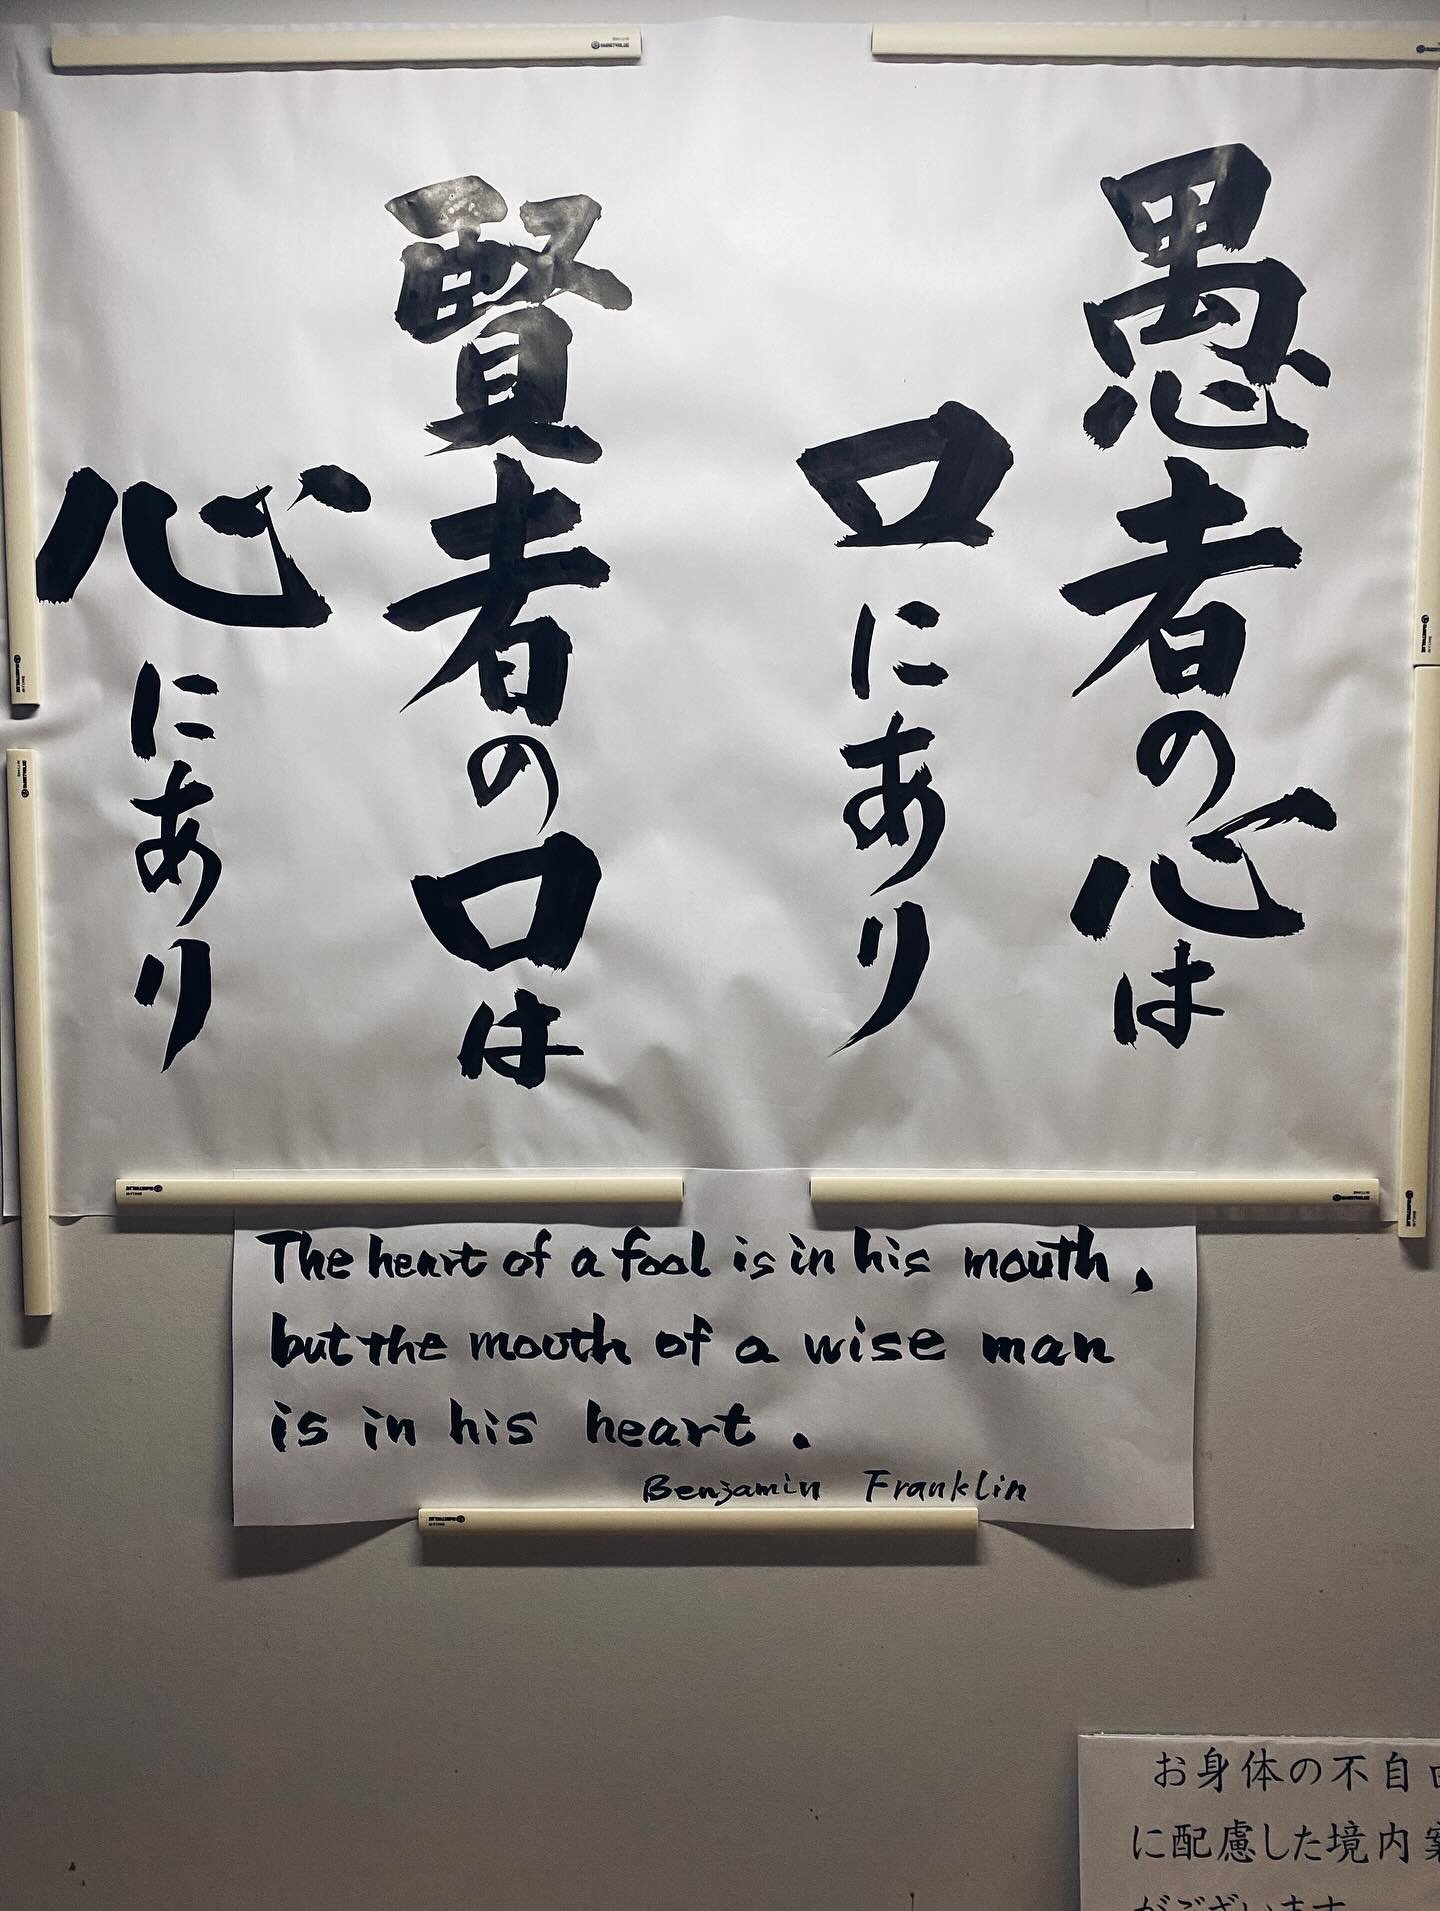 愚者の心は
口にあり
賢者の口は
心にあり
The heart of a fool is in his mouth,
but the mouth of a wise man
is in his heart.
Benjamin Franklin
お身体の不自
に配慮した境内
がございます